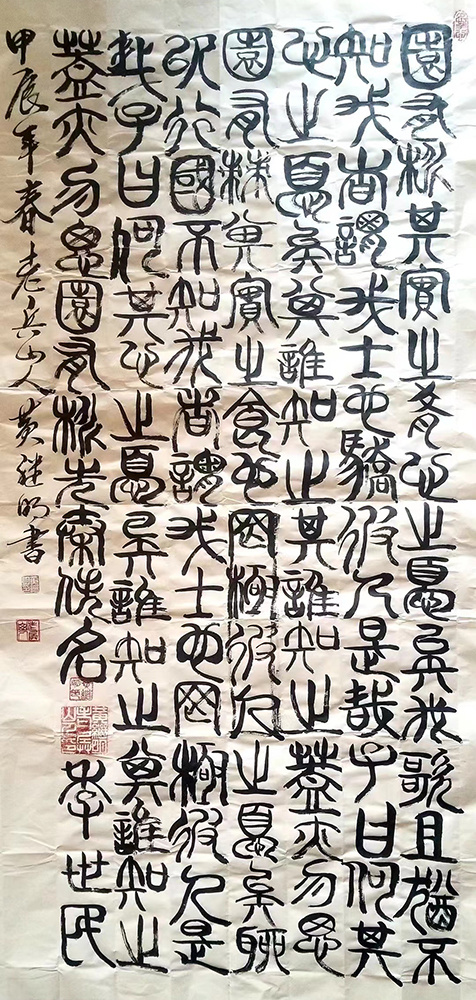 園有桃其實之肴心之憂矣我歌且謠不
知我者謂我士也驕彼人是哉子曰何其
心之憂矣其誰知之其誰知之蓋亦勿思
園有棘其實之食也罔極彼人之憂矣聊
以行國不知我者謂我士也罔極彼人是
哉子曰何其心之憂矣誰知之其誰知之
蓋亦勿思園有桃先秦佚名 李世民
甲辰年春老兵山人黄继明書